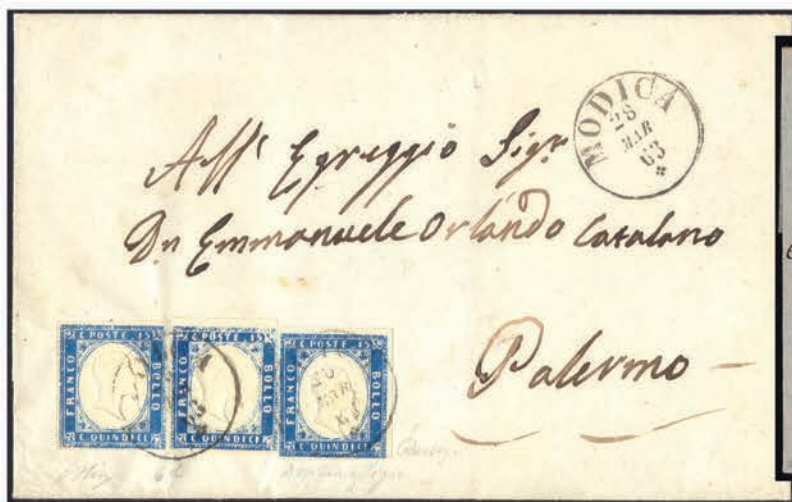 MODICA
28
MAR
63
All' Egreggio Sigr
Dn Emmanuele Orlando Catalano
Palermo
C. POSTE 15
FRANCO
BOLLO
C. QUINDECI
C. POSTE 15
FRANCO
BOLLO
C. QUINDECI
C. POSTE 15
FRANCO
BOLLO
C. QUINDECI